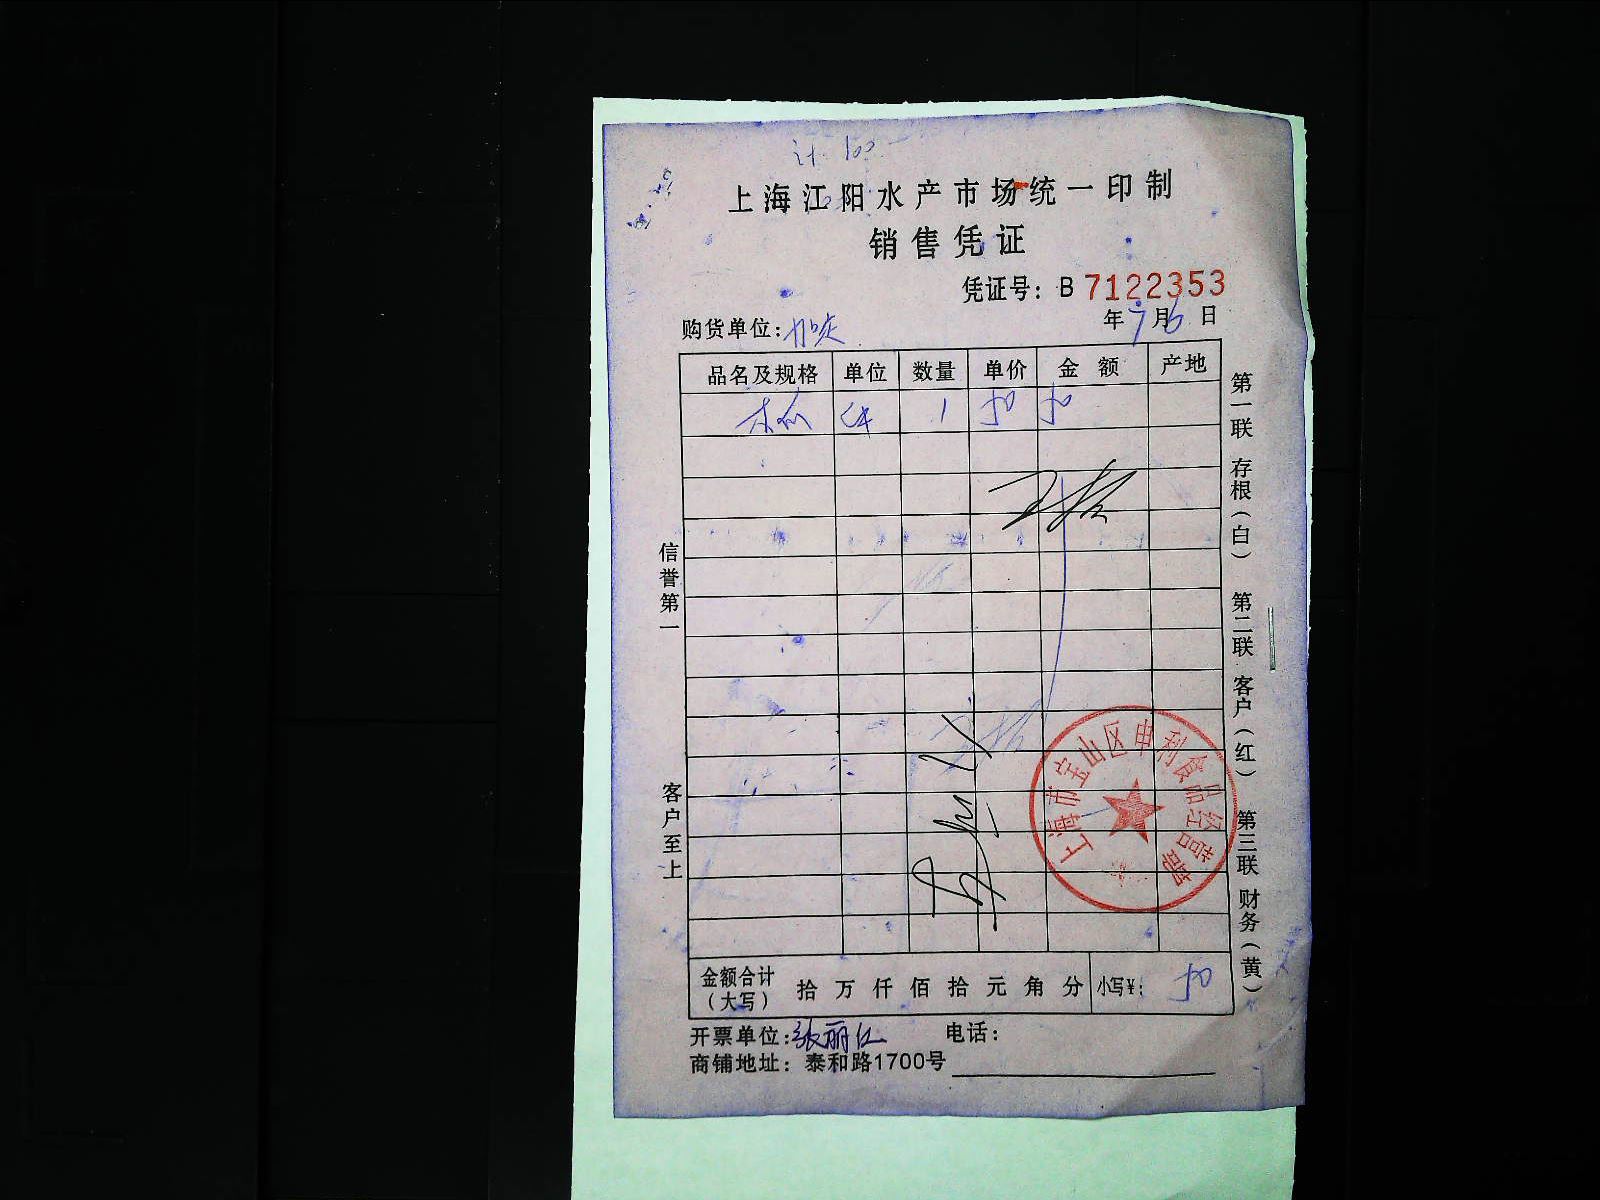 计 100
上海江阳水产市场统一印制
销售凭证
凭证号：B 7122353
购货单位：加定 年7月6日
品名及规格 单位 数量 单价 金额 产地
1 50 50
信誉第一
客户至上
第一联 存根（白） 第二联 客户（红） 第三联 财务（黄）
上海市宝山区申利食品经营部
金额合计（大写） 拾 万 仟 佰 拾 元 角 分 小写¥： 50
开票单位：张丽红 电话：
商铺地址：泰和路1700号